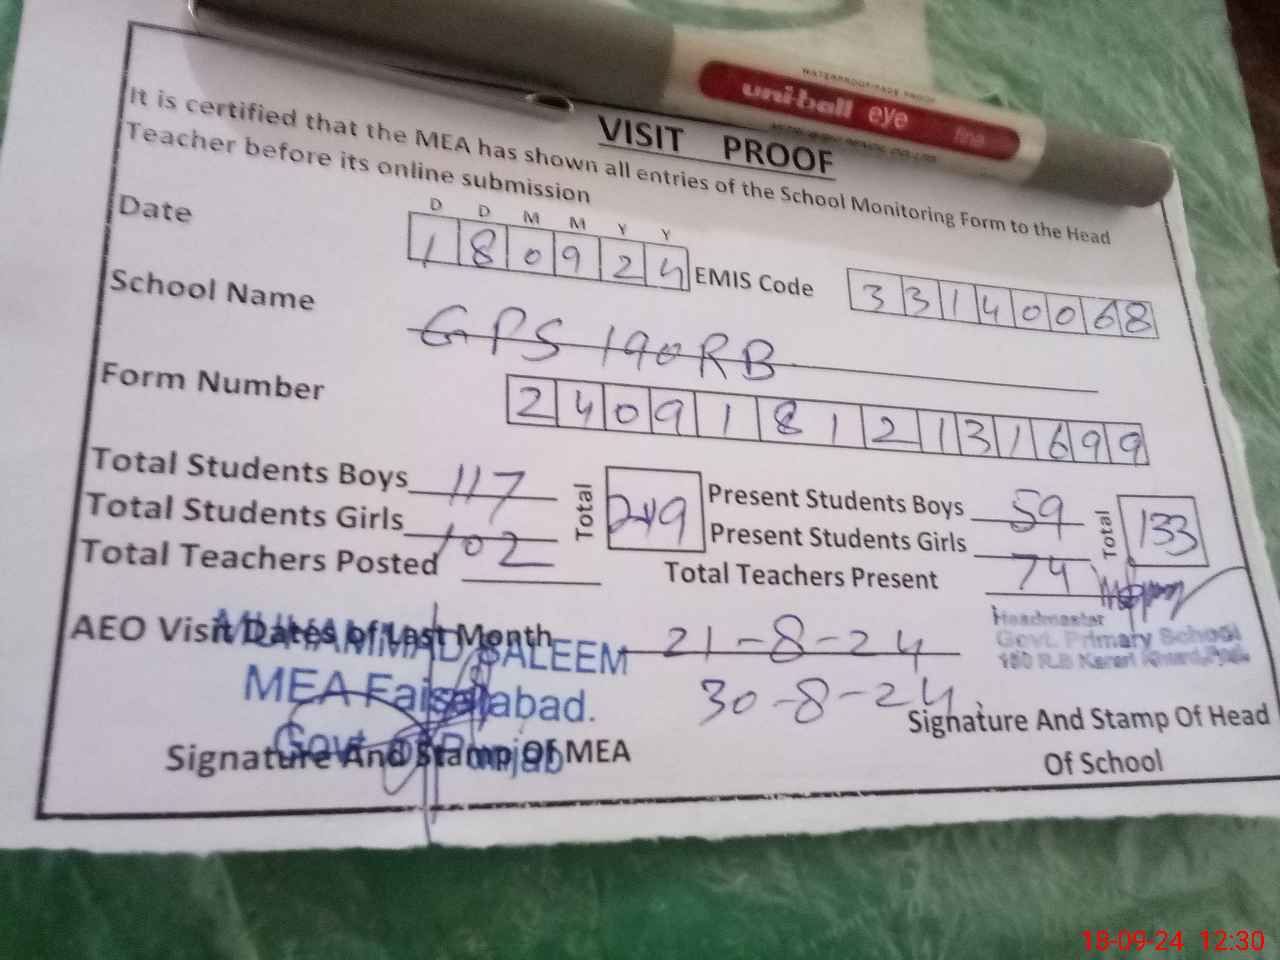 WATERPROOF/FADE PROOF
uni-ball eye fine
VISIT PROOF
It is certified that the MEA has shown all entries of the School Monitoring Form to the Head
Teacher before its online submission
D D M M Y Y
Date 180924 EMIS Code 33140068
School Name GPS 190RB
Form Number 24091812131699
Total Students Boys 117 Total 219 Present Students Boys 59 Total 133
Total Students Girls 102 Present Students Girls 74
Total Teachers Posted Total Teachers Present
Headmaster
Govt. Primary School
R.B
AEO Visit Dates of Last Month 21-8-24
30-8-24
MUHAMMAD SALEEM
MEA Faisalabad.
Govt. of Punjab
Signature And Stamp Of MEA
Signature And Stamp Of Head
Of School
18-09-24 12:30